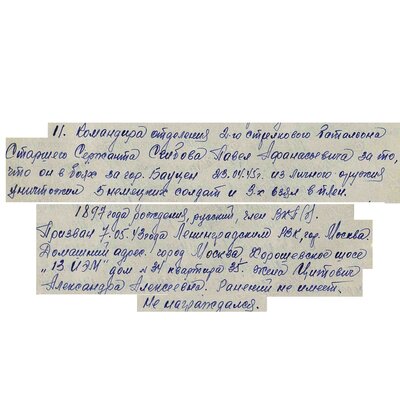 11. Командира отделения 2-го стрелкового батальона
Старшего Сержанта Павла Афанасьевича за то,
что он в боях за гор. Бауцен 23.04.45г. из личного оружия
уничтожил 5 немецких солдат и 3-х взял в плен.
1897 года рождения, русский, член ВКП(б).
Призван 7.05.43 года Ленинградским РВК, гор. Москва.
Домашний адрес: город Москва Хорошевское шосе
"13 дом № 34 квартира 35. жена
Александра Алексеевна. Ранений не имеет.
Не награждался.